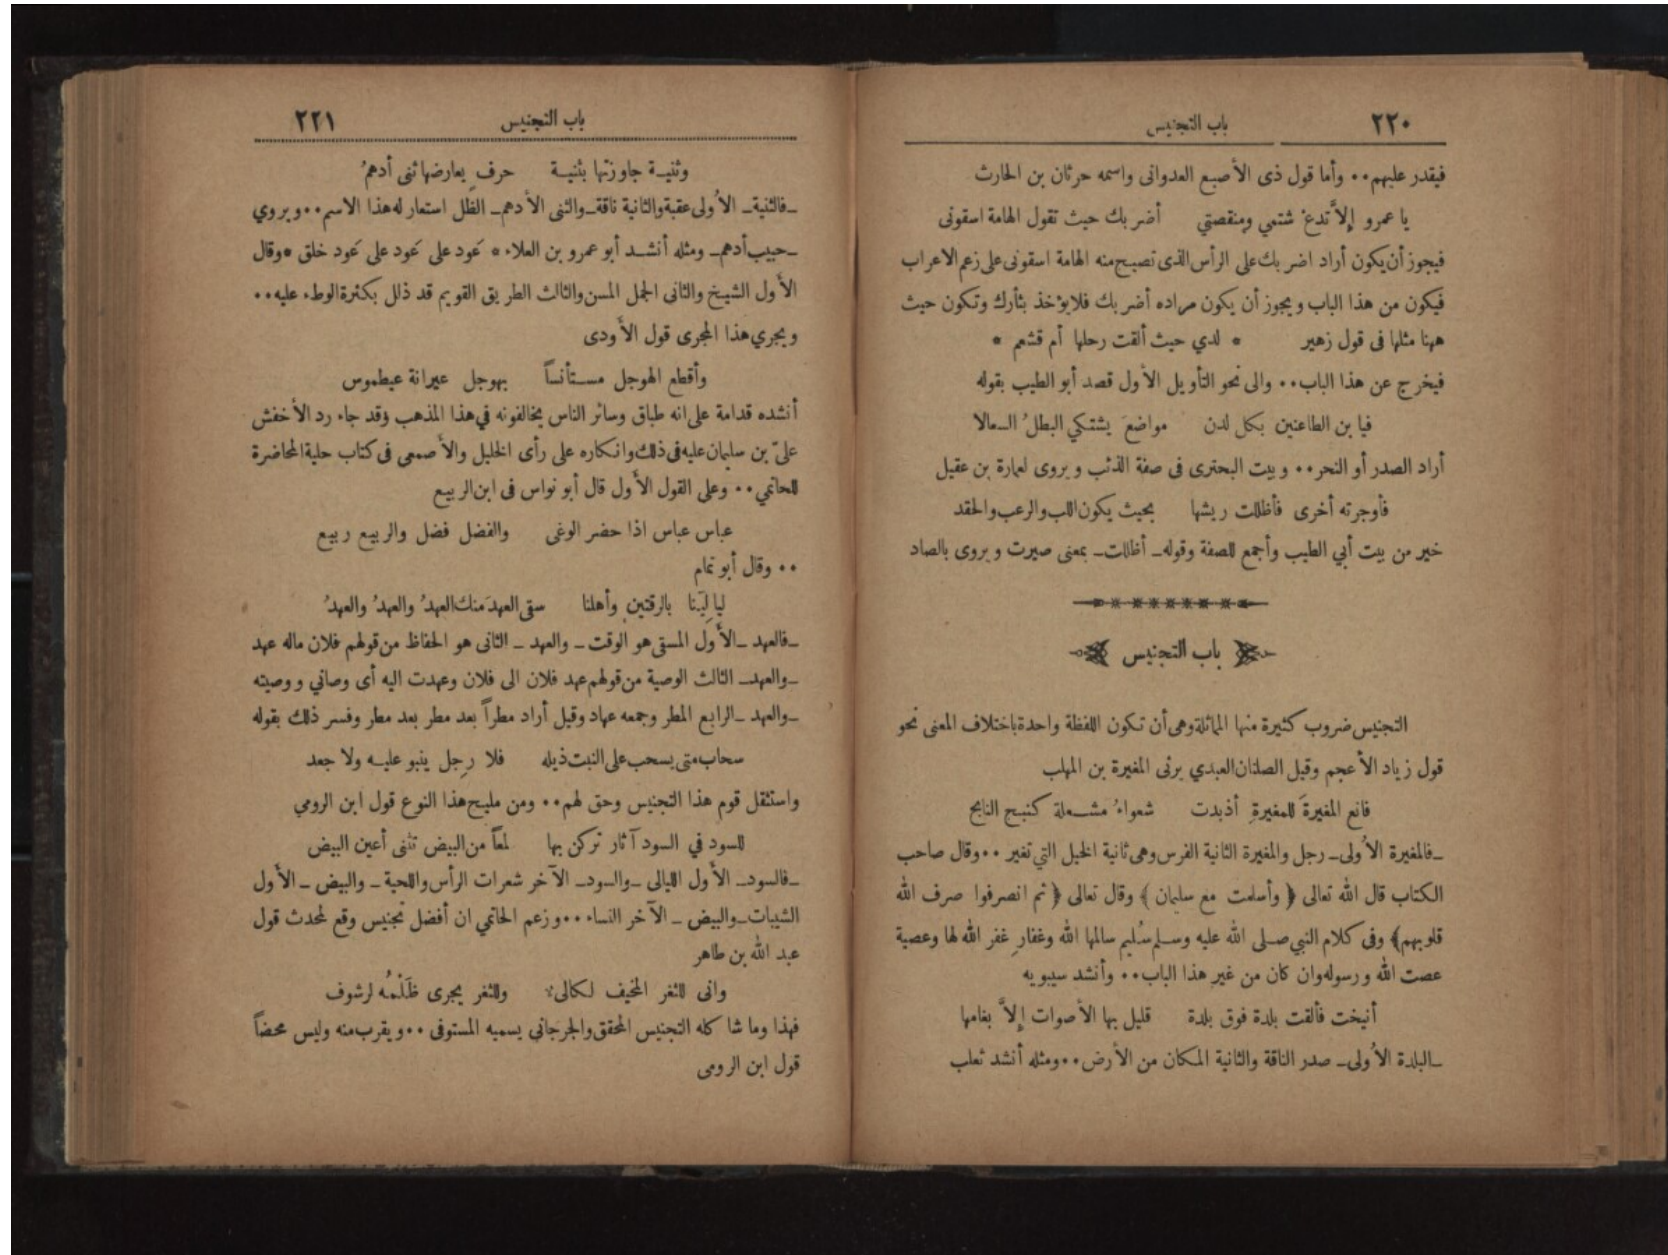 باب التجنيس ٢٢٠
فيقدر عليهم٠٠ وأما قول ذى الأصبع العدوانى واسمه حرثان بن الحارث
يا عمرو إلاَّ تدعْ شتمي ومنقصتي أضربك حيث تقول الهامة اسقونى
فيجوز أن يكون أراد اضربك على الرأس الذى تصيح منه الهامة اسقونى على زعم الاعراب
فيكون من هذا الباب ويجوز أن يكون مراده أضربك فلا يؤخذ بثأرك وتكون حيث
ههنا مثلها فى قول زهير * لدي حيث ألقت رحلها أم قشعم *
فيخرج عن هذا الباب٠٠ والى نحو التأويل الأول قصد أبو الطيب بقوله
فيا بن الطاعنين بكل لدن مواضعَ يشتكي البطلُ السعالا
أراد الصدر أو النحر٠٠ وبيت البحترى فى صفة الذئب ويروى لعمارة بن عقيل
فأوجرته أخرى فأظللت ريشها بحيث يكون اللب والرعب والحقد
خير من بيت أبي الطيب وأجمع للصفة وقوله ـ أظللت ـ بمعنى صيرت ويروى بالصاد
باب التجنيس
التجنيس ضروب كثيرة منها المماثلة وهى أن تكون اللفظة واحدة باختلاف المعنى نحو
قول زياد الأعجم وقيل الصلتان العبدي يرثى المغيرة بن المهلب
فانع المغيرةَ للمغيرةِ أذبدت شعواءُ مشعلة كنبح النابح
ـ فالمغيرة الأولى ـ رجل والمغيرة الثانية الفرس وهى ثانية الخيل التي تغير ٠٠ وقال صاحب
الكتاب قال الله تعالى ﴿ وأسلمت مع سليمان ﴾ وقال تعالى ﴿ ثم انصرفوا صرف الله
قلوبهم﴾ وفى كلام النبي صلى الله عليه وسلم سُليم سالمها الله وغفارِ غفر الله لها وعصية
عصت الله ورسوله وان كان من غير هذا الباب٠٠ وأنشد سيبويه
أنيخت فألقت بلدة فوق بلدة قليل بها الأصوات إلاَّ بغامها
ـ البلدة الأولى ـ صدر الناقة والثانية المكان من الأرض٠٠ ومثله أنشد ثعلب
باب التجنيس ٢٢١
وثنية جاوزتها بثنية حرفٍ يعارضها ثنى أدهمُ
ـ فالثنية ـ الأولى عقبة والثانية ناقة ـ والثنى الأدهم ـ الظل استعار له هذا الاسم٠٠ ويروي
ـ حبيب أدهم ـ ومثله أنشد أبو عمرو بن العلاء * عَود على عَود على عَود خلق * وقال
الأول الشيخ والثانى الجمل المسن والثالث الطريق القويم قد ذلل بكثرة الوطء عليه٠٠
ويجري هذا المجرى قول الأودى
وأقطع الهوجل مستأنساً بهوجل عيرانة عيطموس
أنشده قدامة على انه طباق وسائر الناس يخالفونه في هذا المذهب وقد جاء رد الأخفش
علىّ بن سليمان عليه فى ذلك وانكاره على رأى الخليل والأصمعى فى كتاب حلية المحاضرة
للحاتمي٠٠ وعلى القول الأول قال أبو نواس فى ابن الربيع
عباس عباس اذا حضر الوغى والفضل فضل والربيع ربيع
٠٠ وقال أبو تمام
ليالِيَنا بالرقتينِ وأهلنا سقى العهدَ منك العهدُ والعهدُ والعهدُ
ـ فالعهد ـ الأول المسقى هو الوقت ـ والعهد ـ الثانى هو الحفاظ من قولهم فلان ماله عهد
ـ والعهد ـ الثالث الوصية من قولهم عهد فلان الى فلان وعهدت اليه أى وصاني ووصيته
ـ والعهد ـ الرابع المطر وجمعه عهاد وقيل أراد مطراً بعد مطر بعد مطر وفسر ذلك بقوله
سحاب متى يسحب على النبت ذيله فلا رِجل ينبو عليه ولا جعد
واستثقل قوم هذا التجنيس وحق لهم٠٠ ومن مليح هذا النوع قول ابن الرومي
للسود في السود آثار تركن بها لمعاً من البيض تثنى أعين البيض
ـ فالسود ـ الأول الليالى ـ والسود ـ الآخر شعرات الرأس واللحية ـ والبيض ـ الأول
الشيبات ـ والبيض ـ الآخر النساء ٠٠٠ وزعم الحاتمي ان أفضل تجنيس وقع لمحدث قول
عبد الله بن طاهر
وانى للثغر المخيف لكالئ وللثغر يجرى ظَلْمُه لرشوف
فهذا وما شاكله التجنيس المحقق والجرجاني يسميه المستوفى ٠٠ ويقرب منه وليس محضاً
قول ابن الرومى